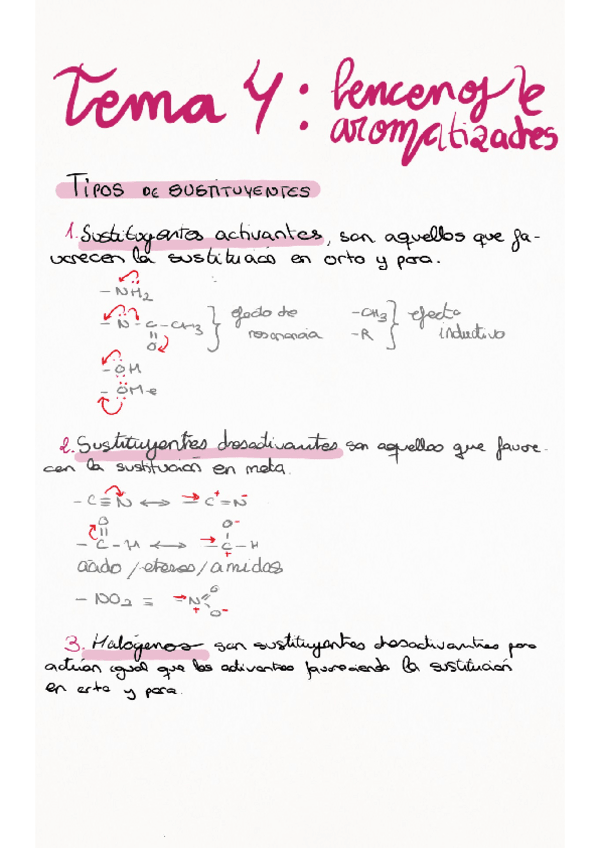 Tema 4: bencenos
aromatizados
TIPOS DE SUSTITUYENTES
1. Sustituyentes activantes, son aquellos que fa-
vorecen la sustitución en orto y para.
-NH2
-N-C-CH3 } efecto de
O
resonancia
-CH3 } efecto
-R inductivo
-OH
-OMe
2. Sustituyentes desactivantes son aquellos que favore-
cen la sustitución en meta.
-C≡N ↔ -C⁺=N⁻
O O⁻
-C-H ↔ -C-H
+
ácido / éteres / amidas
-NO2 = -N O
+ O⁻
3. Halógenos son sustituyentes desactivantes pero
actúan igual que los activantes favoreciendo la sustitución
en orto y para.